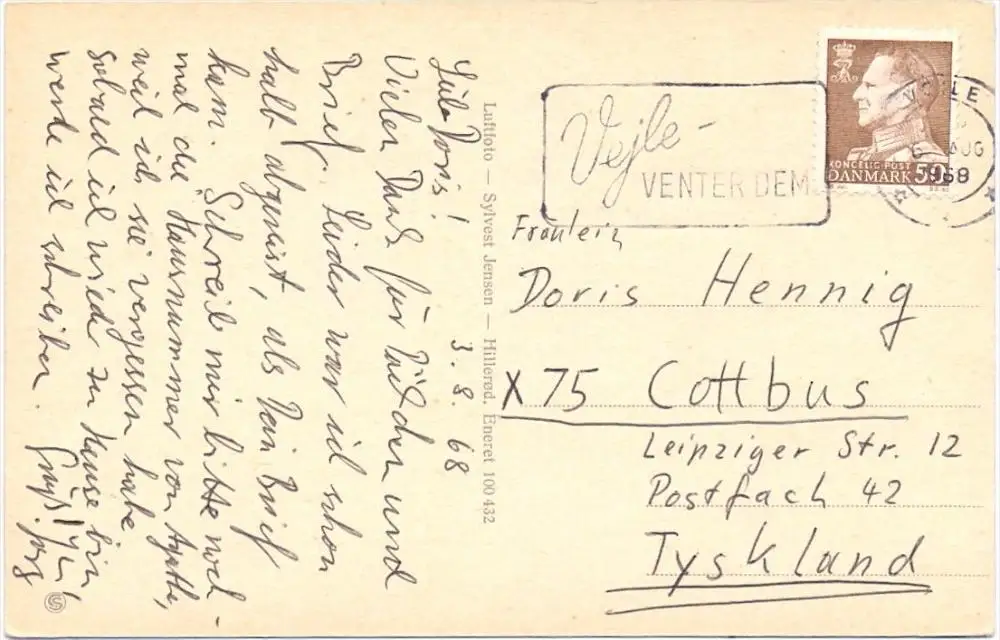 3. 8. 68
Liebe Doris!
Vielen Dank für Päckchen und
Brief. Leider war ich schon
halb abgereist, als Dein Brief
kam. Schreib mir bitte noch-
mal die Hausnummer von
weil ich sie vergessen habe
sobald ich wieder zu Hause bin,
werde ich schreiben. Gruß!
Luftfoto — Sylvest Jensen — Hillerød. Eneret 100432
Vejle -
VENTER DEM
VEJLE
AUG
1968
KONGELIG POST
DANMARK 50
Fräulein
Doris Hennig
X75 Cottbus
Leipziger Str. 12
Postfach 42
Tyskland